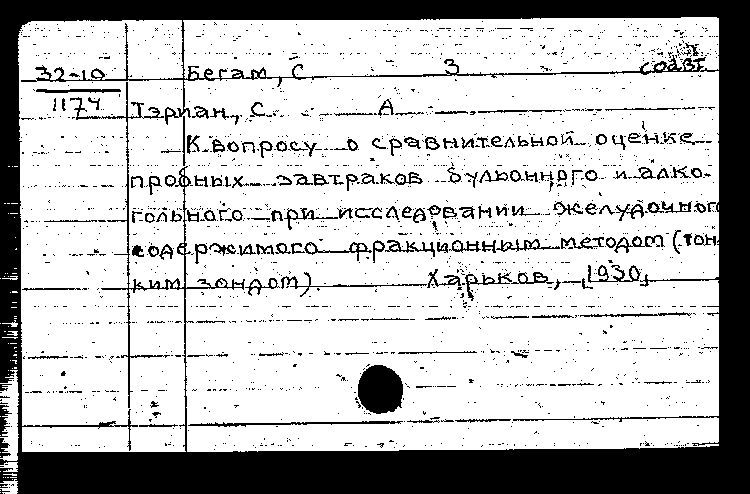 32-10 Бегам, С. З соавт.
1174 Тэриан, С. А
К вопросу о сравнительной оценке
пробных завтраков бульонного и алко-
гольного при исследовании желудочного
содержимого фракционным методом (тон-
ким зондом) Харьков, 1930,